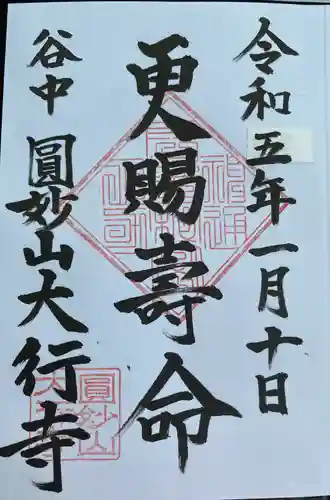 令和五年一月十日
更賜壽命
谷中 圓妙山大行寺